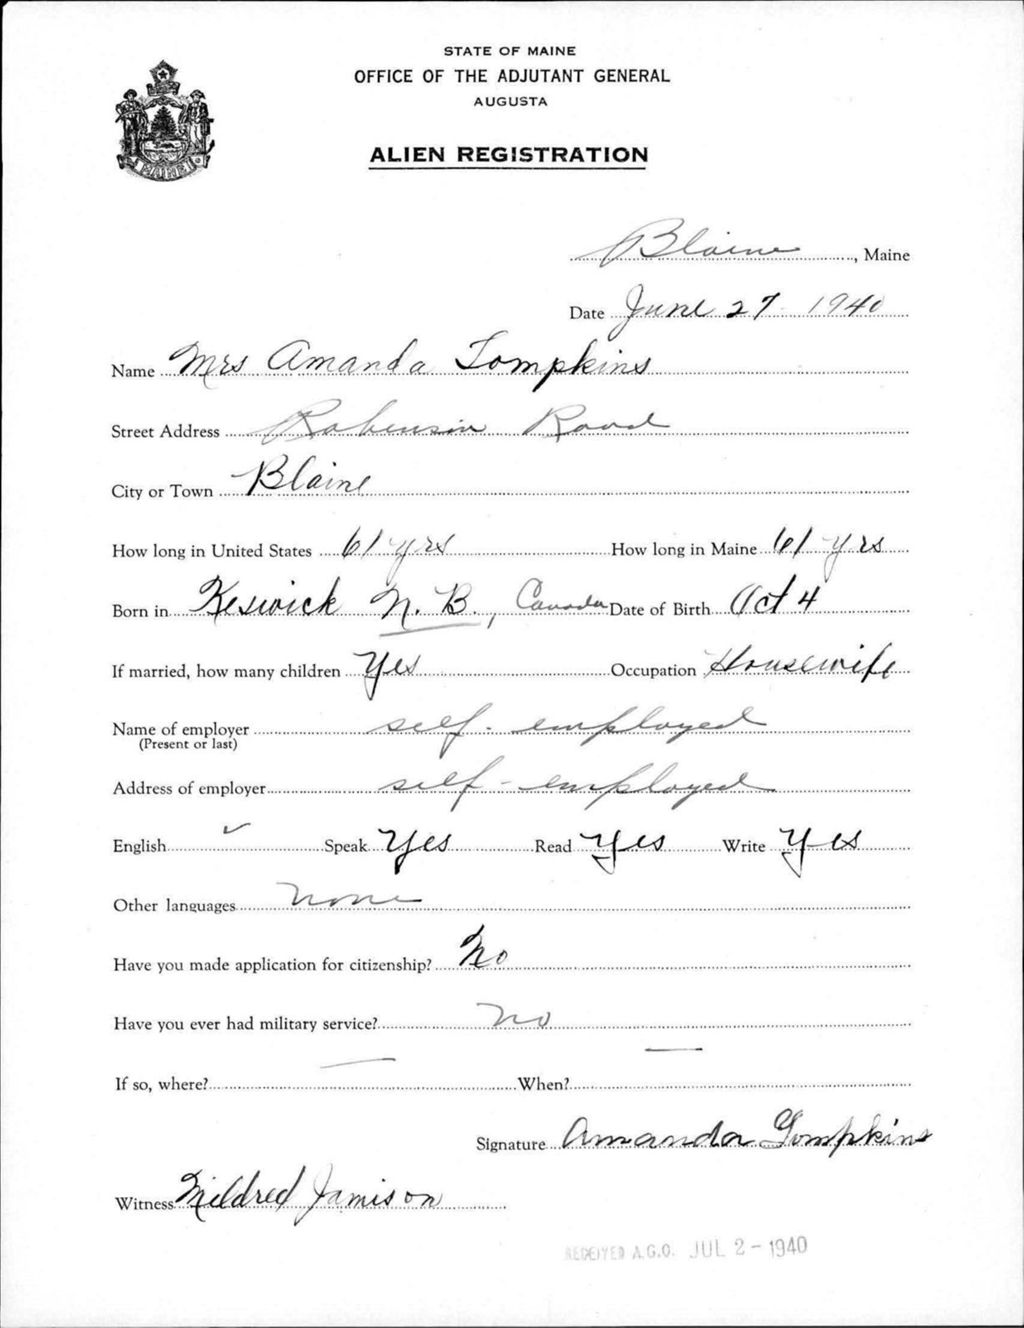 STATE OF MAINE
OFFICE OF THE ADJUTANT GENERAL
AUGUSTA
MAINE
ALIEN REGISTRATION
Blaine, Maine
Date June 27 1940
Name Mrs Amanda Tompkins
Street Address Robinson Road
City or Town Blaine
How long in United States 61 yrs How long in Maine 61 yrs
Born in Keswick N. B., Canada Date of Birth Oct 4
If married, how many children Yes Occupation Housewife
Name of employer self-employed
(Present or last)
Address of employer self-employed
English ✓ Speak Yes Read Yes Write Yes
Other languages none
Have you made application for citizenship? No
Have you ever had military service? no
If so, where? — When? —
Signature Amanda Tompkins
Witness Mildred Jamison
RECEIVED A.G.O. JUL 2 - 1940